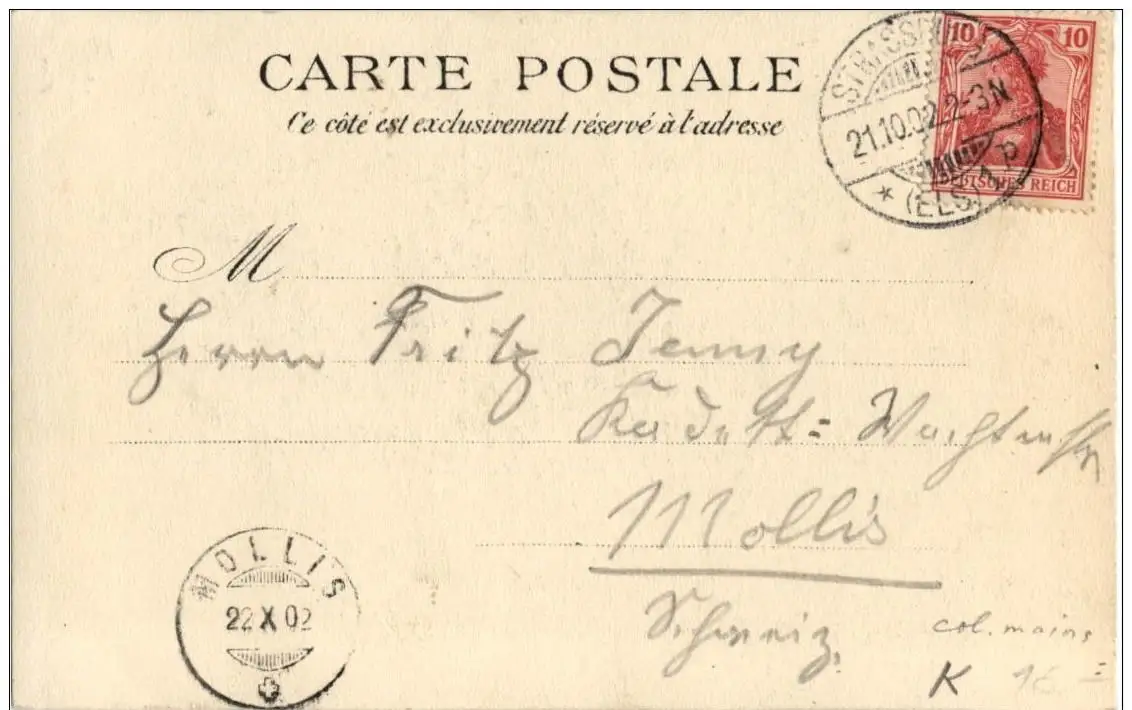 CARTE POSTALE
Ce côté est exclusivement réservé à l'adresse
10 10
DEUTSCHES REICH
STRASSBURG
21.10.02.2-3N
* (ELS)
M
Herrn Fritz Jenny
Kadett=
Mollis
Schweiz.
MOLLIS
22 X 02
col. moins
K 16 =